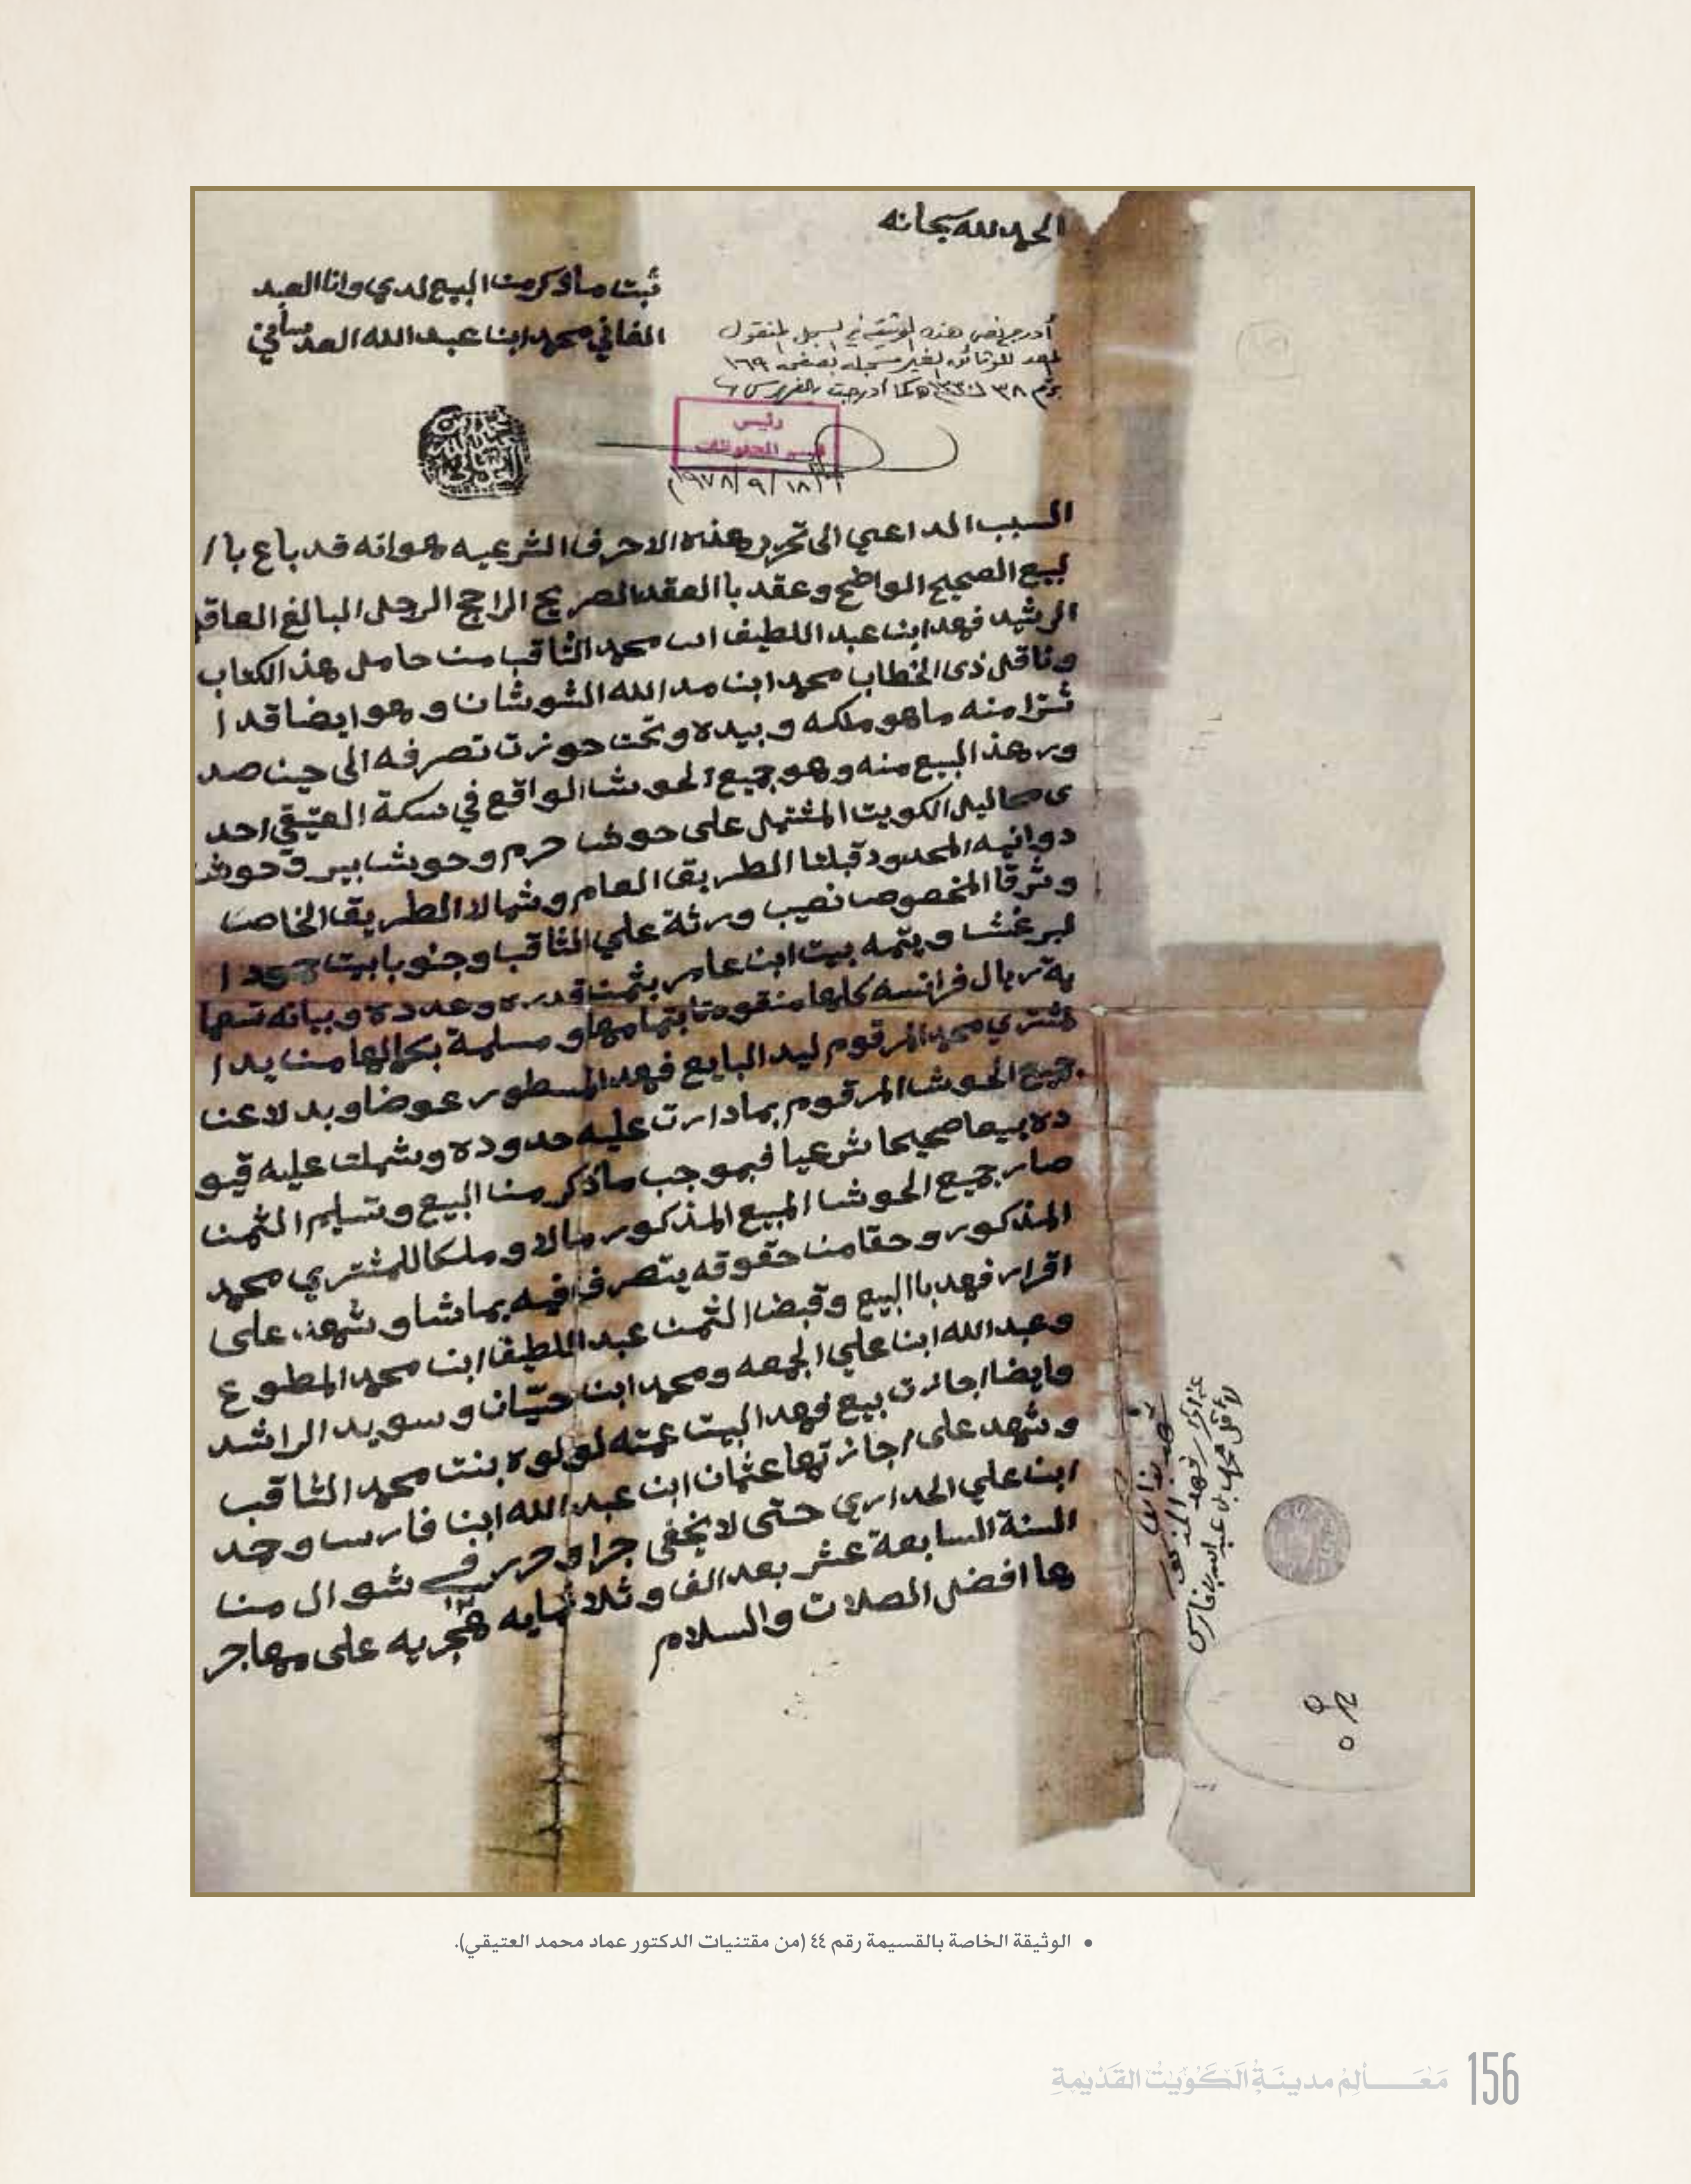 الحمد لله سبحانه
ثبت ما ذكر من البيع لدي وانا العبد
الفاني محمد ابن عبد الله العدساني
أدرج نص هذه الوثيقة في السجل المنقول
المعد للوثائق الغير مسجله بصفحة ١٦٩
برقم ٣٨ كما أدرجت بالفهرس
رئيس
قسم المحفوظات
١٩٧٨/٩/١٨م
السبب الداعي الى تحرير هذه الاحرف الشرعيه هو انه قد باع با/
لبيع الصحيح الواضح وعقد با العقد الصريح الراجح الرجل البالغ العاقل
الرشيد فهد ابن عبد اللطيف ابن محمد الثاقب من حامل هذ الكتاب
وناقل ذى الخطاب محمد ابن مد الله الشوشان وهو ايضا قد ا
شترا منه ما هو ملكه وبيده وتحت حوزت تصرفه الى حين صد
ور هذ البيع منه وهو جميع الحوش الواقع في سكة العتيقي احد
ى محاليل الكويت المشتمل على حوش حرم وحوش بير وحوش
دوانيه المحدود قبلتا الطريق العام وشمالا الطريق الخاص
وشرقا المخصوص نصيب ورثة علي الثاقب وجنوبا بيت حمود ا
لبرغش ويتمه بيت ابن عامر بثمن قدره وعدده وبيانه تسعما
ية ريال فرانسه كلها منقومتا بتمامها ومسلمة بكمالها من يد ا
لمشتري محمد المرقوم ليد البايع فهد المسطور عوضا وبدلا عن
جميع الحوش المرقوم بما دارت عليه حدوده وشملت عليه قيو
ده بيعا صحيحا شرعيا فبموجب ما ذكر من البيع وتسليم الثمن
صار جميع الحوش المبيع المذكور مالا وملكا للمشتري محمد
المذكور وحقا من حقوقه يتصرف فيه بما شا وشهد على
اقرار فهد با البيع وقبض الثمن عبد اللطيف ابن محمد المطوع
وعبد الله ابن علي الجمعه ومحمد ابن حيّان وسويد الراشد
وايضا اجازت بيع فهد البيت عمته لولوه بنت محمد الثاقب
وشهد على اجازتها عثمان ابن عبد الله ابن فارس وحمد
ابن علي الحداري حتى لا يخفى جرا وحرر في ١٢ شوال من
السنة السابعة عشر بعد الف وثلاثمايه هجريه على مهاجر
ها افضل الصلات والسلام
• الوثيقة الخاصة بالقسيمة رقم ٤٤ (من مقتنيات الدكتور عماد محمد العتيقي).
156 مَعَــالِمُ مدينَةِ الكُوَيْتِ القَدْيمةِ